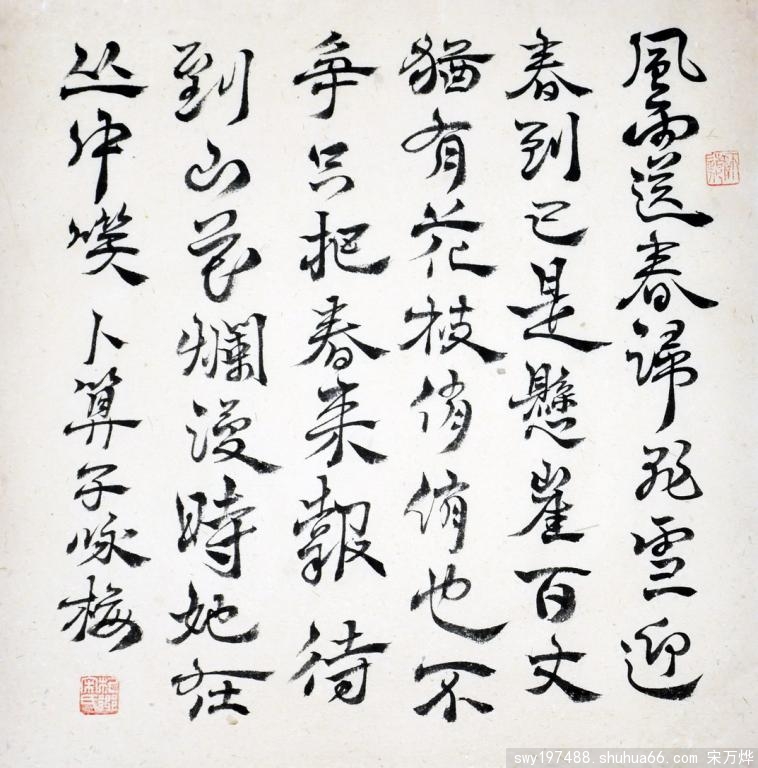 風雨送春歸飛雪迎
春到已是懸崖百丈
猶有花枝俏俏也不
争只把春来報待
到山花爛漫時她在
丛中笑 卜算子咏梅
swy197488.shuhua66.com 宋万烨